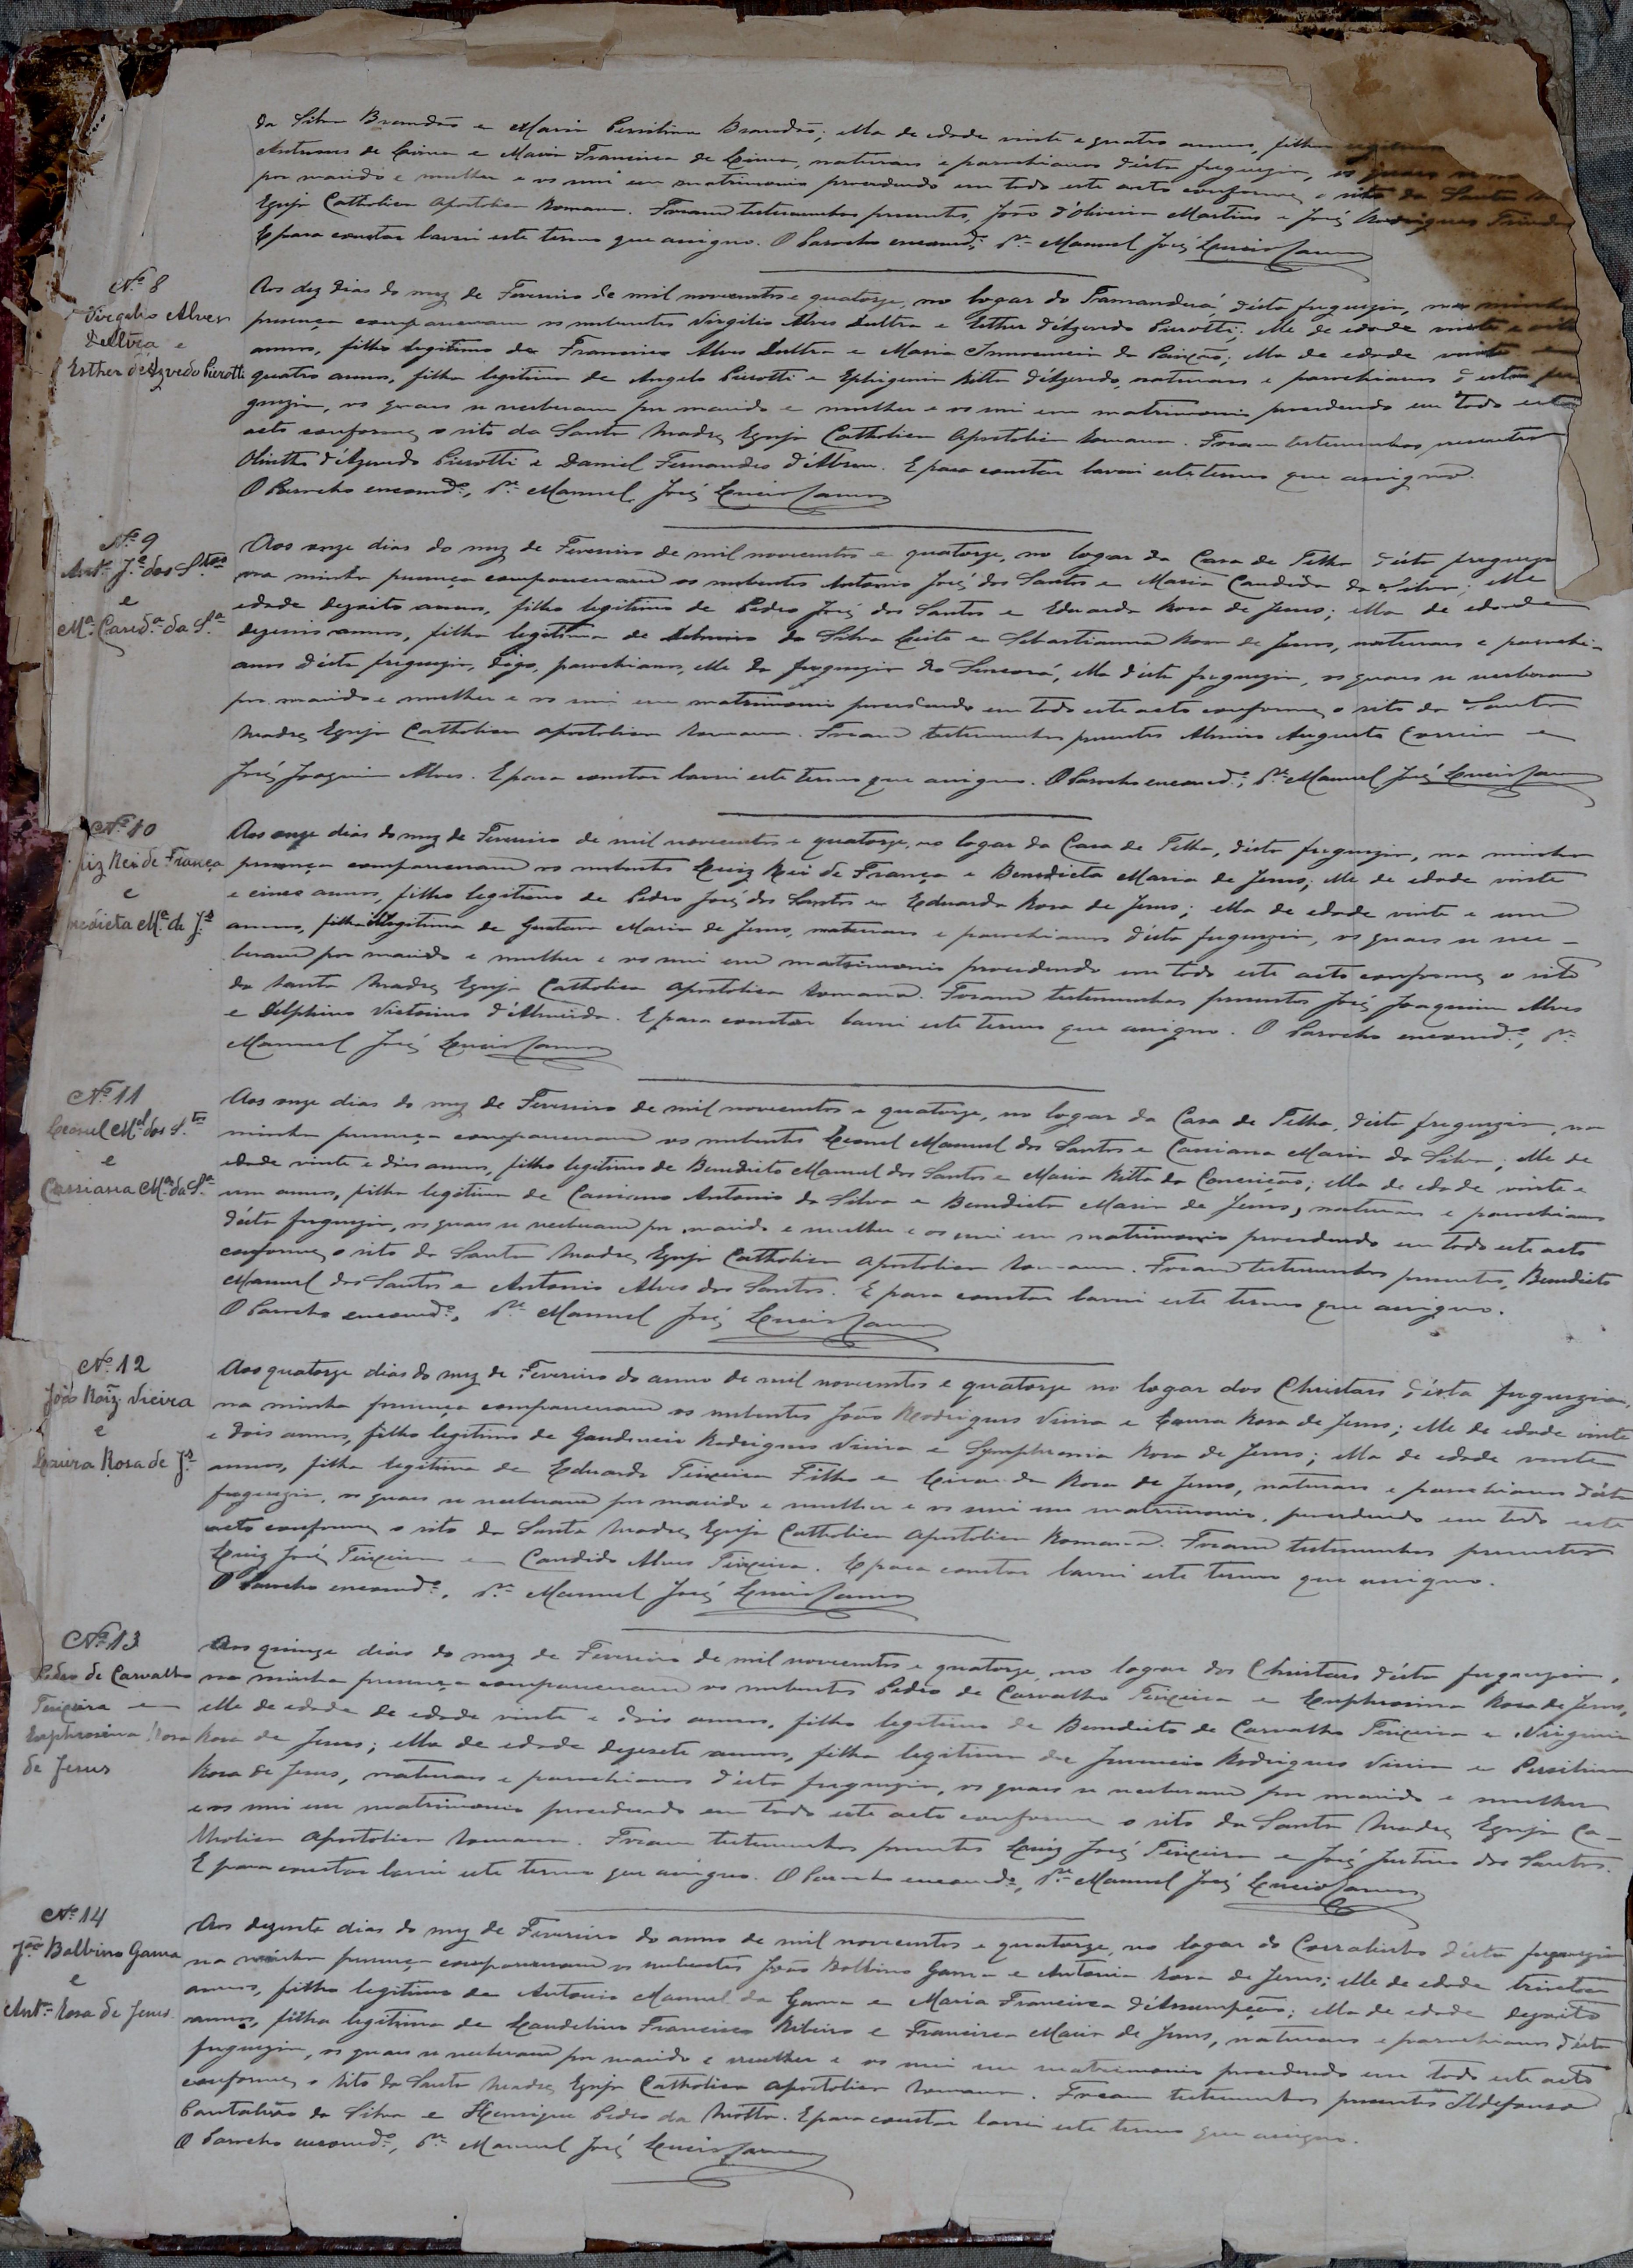 da Silva Brandão e Maria Persilina Brandão; ella de edade vinte e quatro annos, filha legitima
Antunes de Lima e Maria Francisca de Lima, naturaes e parochianos d'ésta freguezia, os quaes
por marido e mulher e os uni em matrimonio procedendo em todo este acto conforme o rito da Santa
Egreja Catholica Apostolica Romana. Foram testemunhas presentes, João d'Oliveira Martins e José Rodrigues
E para constar lavrei este termo que assigno. O Parocho encomd.º, P.e Manuel José
Nº 8
Virgilio Alves
Dultra e
Esther d'Azevedo Pierotti
Aos dez dias do mez de Fevereiro de mil novecentos e quatorze, no logar do Tamanduá, d'ésta freguezia, na minha
presença compareceram os nubentes Virgilio Alves Dultra e Esther d'Azevedo Pierotti; elle de edade vinte e oito
annos, filho legitimo de Francisco Alves Dultra e Maria Innocencia da Paixão; ella de edade vinte e
quatro annos, filha legitima de Angelo Pierotti e Ephigenia Ritta d'Azevedo, naturaes e parochianos d'esta fre
guezia, os quaes se receberam por marido e mulher e os uni em matrimonio procedendo em todo este
acto conforme o rito da Santa Madre Egreja Catholica Apostolica Romana. Foram testemunhas presentes
Olintho d'Azevedo Pierotti e Daniel Fernandes d'Abreu. E para constar lavrei este termo que assigno.
O Parocho encomd.º, P.e Manuel José
Nº 9
Ant.º J.é dos S.tos
e
M.ª Cand.ª da S.ª
Aos onze dias do mez de Fevereiro de mil novecentos e quatorze, no logar da Casa de Telha d'ésta freguezia
na minha presença compareceram os nubentes Antonio José dos Santos e Maria Candida da Silva; elle
edade dezoito annos, filho legitimo de Pedro José dos Santos e Eduarda Rosa de Jesus; ella de edade
dezeseis annos, filha legitima de da Silva Leite e Sebastianna Rosa de Jesus, naturaes e parochi-
anos d'ésta freguezia, digo, parochianos, elle da freguezia do Sincorá, ella d'ésta freguezia, os quaes se receberam
por marido e mulher e os uni em matrimonio procedendo em todo este acto conforme o rito da Santa
Madre Egreja Catholica Apostolica Romana. Foram testemunhas presentes Almiro Augusto Correia e
José Joaquim Alves. E para constar lavrei este termo que assigno. O Parocho encomd.º, P.e Manuel José
Nº 10
iz Rei de França
e
nedicta M.ª de J.s
Aos onze dias do mez de Fevereiro de mil novecentos e quatorze, no logar da Casa de Telha, d'ésta freguezia, na minha
presença compareceram os nubentes Luiz Rei de França e Benedicta Maria de Jesus; elle de edade vinte
e cinco annos, filho legitimo de Pedro José dos Santos e Eduarda Rosa de Jesus; ella de edade vinte e um
annos, filha illegitima de Gustava Maria de Jesus, naturaes e parochianos d'ésta freguezia, os quaes se rece-
beram por marido e mulher e os uni em matrimonio procedendo em todo este acto conforme o rito
da Santa Madre Egreja Catholica Apostolica Romana. Foram testemunhas presentes José Joaquim Alves
e Delphino Victorino d'Almeida. E para constar lavrei este termo que assigno. O Parocho encomd.º, P.e
Manuel José
Nº 11
Leonel M.el dos S.tos
e
Cassiana M.ª da S.ª
Aos onze dias do mez de Fevereiro de mil novecentos e quatorze, no logar da Casa de Telha, d'ésta freguezia, na
minha presença compareceram os nubentes Leonel Manuel dos Santos e Cassiana Maria da Silva; elle de
edade vinte e dois annos, filho legitimo de Benedicto Manuel dos Santos e Maria Ritta da Conceição; ella de edade vinte e
um annos, filha legitima de Cassiano Antonio da Silva e Benedicta Maria de Jesus, naturaes e parochianos
d'ésta freguezia, os quaes se receberam por marido e mulher e os uni em matrimonio procedendo em todo este acto
conforme o rito da Santa Madre Egreja Catholica Apostolica Romana. Foram testemunhas presentes, Benedicto
Manuel dos Santos e Antonio Alves dos Santos. E para constar lavrei este termo que assigno.
O Parocho encomd.º, P.e Manuel José
Nº 12
João Roiz Vieira
e
Laura Rosa de J.s
Aos quatorze dias do mez de Fevereiro do anno de mil novecentos e quatorze no logar dos Christaes d'ésta freguezia,
na minha presença compareceram os nubentes João Rodrigues Vieira e Laura Rosa de Jesus; elle de edade vinte
e dois annos, filho legitimo de Gaudencio Rodrigues Vieira e Symphronia Rosa de Jesus; ella de edade vinte
annos, filha legitima de Eduardo Teixeira Filho e Rosa de Jesus, naturaes e parochianos d'ésta
freguezia, os quaes se receberam por marido e mulher e os uni em matrimonio, procedendo em todo este
acto conforme o rito da Santa Madre Egreja Catholica Apostolica Romana. Foram testemunhas presentes
Luiz José Teixeira e Candido Alves Teixeira. E para constar lavrei este termo que assigno.
O Parocho encomd.º, P.e Manuel José
Nº 13
Pedro de Carvalho
Teixeira e
Euphrosina Rosa
de Jesus
Aos quinze dias do mez de Fevereiro de mil novecentos e quatorze, no logar dos Christaes d'ésta freguezia,
na minha presença compareceram os nubentes Pedro de Carvalho Teixeira e Euphrosina Rosa de Jesus,
elle de edade de edade vinte e dois annos, filho legitimo de Benedicto de Carvalho Teixeira e Virginia
Rosa de Jesus; ella de edade dezesete annos, filha legitima de Rodrigues Vieira e Persilina
Rosa de Jesus, naturaes e parochianos d'ésta freguezia, os quaes se receberam por marido e mulher
e os uni em matrimonio procedendo em todo este acto conforme o rito da Santa Madre Egreja Ca-
tholica Apostolica Romana. Foram testemunhas presentes Luiz José Teixeira e José Justino dos Santos.
E para constar lavrei este termo que assigno. O Parocho encomd.º, P.e Manuel José
Nº 14
J.ão Balbino Gama
e
Ant.ª Rosa de Jesus
Aos dezesete dias do mez de Fevereiro do anno de mil novecentos e quatorze, no logar do Corralinho d'ésta freguezia
na minha presença compareceram os nubentes João Balbino Gama e Antonia Rosa de Jesus; elle de edade trinta
annos, filho legitimo de Antonio Manuel da Gama e Maria Francisca d'Assumpção; ella de edade dezoito
annos, filha legitima de Laudelino Francisco Ribeiro e Francisca Maria de Jesus, naturaes e parochianos d'ésta
freguezia, os quaes se receberam por marido e mulher e os uni em matrimonio procedendo em todo este acto
conforme o rito da Santa Madre Egreja Catholica Apostolica Romana. Foram testemunhas presentes Ildefonso
Pantaleão da Silva e Henrique Pedro da Motta. E para constar lavrei este termo que assigno.
O Parocho encomd.º, P.e Manuel José